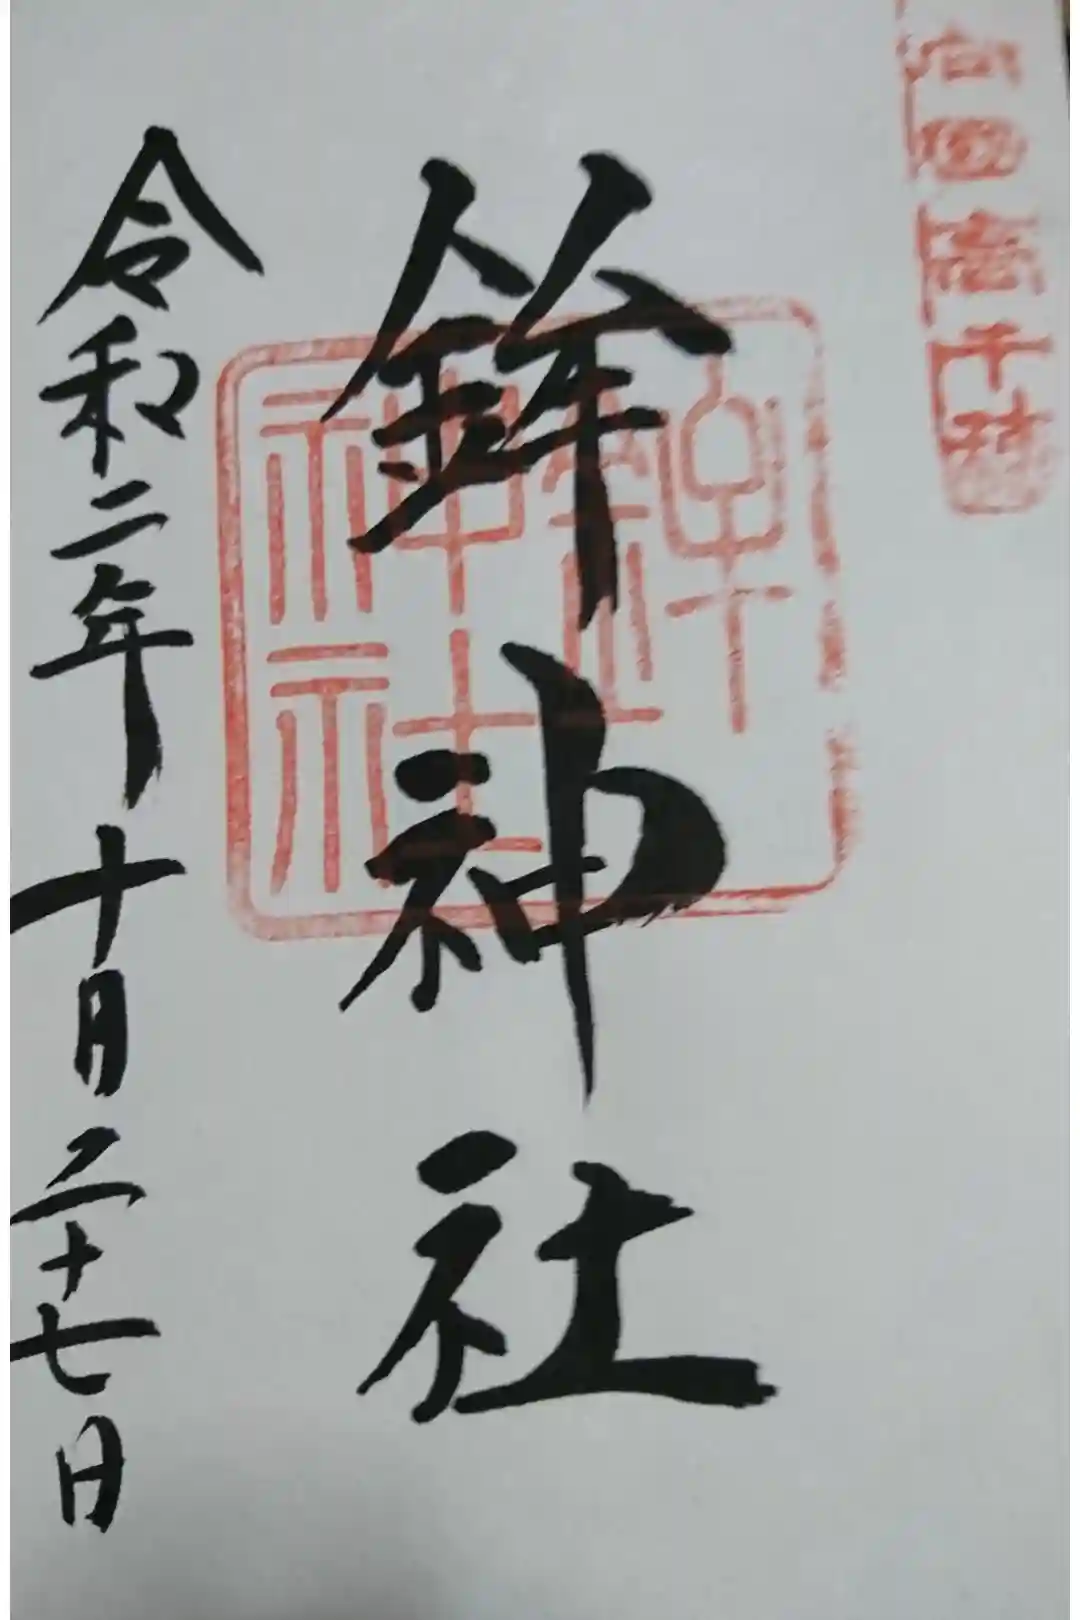 鉾神社
鉾
神社
令和二年十月二十七日